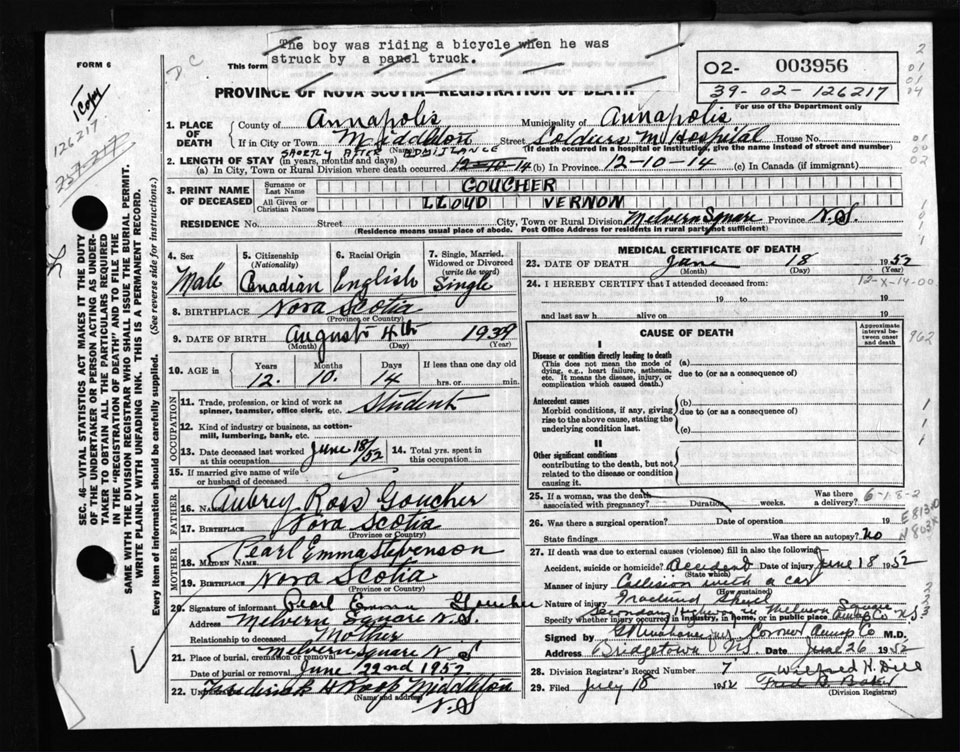 The boy was riding a bicycle when he was
struck by a panel truck.
FORM 6
This form
D C
1 Copy
126217
737-217
02- 003956
39-02-126217
For use of the Department only
PROVINCE OF NOVA SCOTIA—REGISTRATION OF DEATH
1. PLACE OF DEATH County of Annapolis Municipality of Annapolis
If in City or Town Middleton Street Soldiers M Hospital House No.
(Name) (If death occurred in a hospital or institution, give the name instead of street and number)
SHORTLY AFTER ADMITTANCE
2. LENGTH OF STAY (in years, months and days)
(a) In City, Town or Rural Division where death occurred 12-10-14 (b) In Province 12-10-14 (c) In Canada (if immigrant)
3. PRINT NAME OF DECEASED Surname or Last Name GOUCHER
All Given or Christian Names LLOYD VERNON
RESIDENCE No. Street City, Town or Rural Division Melvern Square Province N.S.
(Residence means usual place of abode. Post Office Address for residents in rural parts not sufficient)
4. Sex Male
5. Citizenship (Nationality) Canadian
6. Racial Origin English
7. Single, Married, Widowed or Divorced (write the word) Single
8. BIRTHPLACE Nova Scotia
(Province or Country)
9. DATE OF BIRTH August 4th 1939
(Month) (Day) (Year)
10. AGE in Years 12 Months 10 Days 14 If less than one day old hrs. or min.
OCCUPATION
11. Trade, profession, or kind of work as spinner, teamster, office clerk, etc. Student
12. Kind of industry or business, as cotton-mill, lumbering, bank, etc.
13. Date deceased last worked at this occupation June 18/52 14. Total yrs. spent in this occupation
15. If married give name of wife or husband of deceased
FATHER
16. Name Aubrey Ross Goucher
17. Birthplace Nova Scotia
(Province or Country)
MOTHER
18. Maiden Name Pearl Emma Stevenson
19. Birthplace Nova Scotia
(Province or Country)
20. Signature of informant Pearl Emma Goucher
Address Melvern Square N.S.
Relationship to deceased Mother
21. Place of burial, cremation or removal Melvern Square N S
Date of burial or removal June 22nd 1952
22. Undertaker Frederick H Roop Middleton
(Name and address) N.S
MEDICAL CERTIFICATE OF DEATH
23. DATE OF DEATH June 18 1952
(Month) (Day) (Year)
24. I HEREBY CERTIFY that I attended deceased from:
12-X-14-00
19 to 19
and last saw h alive on 19
CAUSE OF DEATH
Approximate interval between onset and death
962
I
Disease or condition directly leading to death (a)
(This does not mean the mode of dying, e.g., heart failure, asthenia, etc. It means the disease, injury, or complication which caused death.) due to (or as a consequence of)
Antecedent causes (b)
Morbid conditions, if any, giving rise to the above cause, stating the underlying condition last. due to (or as a consequence of)
(c)
II
Other significant conditions
contributing to the death, but not related to the disease or condition causing it.
25. If a woman, was the death associated with pregnancy? Duration weeks. Was there a delivery?
6-1-8-2
E813.0
N803X
26. Was there a surgical operation? Date of operation 19
State findings Was there an autopsy? No
27. If death was due to external causes (violence) fill in also the following:
Accident, suicide or homicide? Accident Date of injury June 18 1952
(State which)
Manner of injury Collision with a car
(How sustained)
Nature of injury Fractured Skull
Secondary Highway in Melvern Square
Specify whether injury occurred in industry, in home, or in public place Annap Co N.S.
Signed by Coroner Annap Co M.D.
Address Bridgetown N.S. Date June 26 1952
28. Division Registrar's Record Number 7 Wilfred H. Dill
29. Filed July 18 1952 Fred B. Baker
(Division Registrar)
SEC. 46—VITAL STATISTICS ACT MAKES IT THE DUTY
OF THE UNDERTAKER OR PERSON ACTING AS UNDER-
TAKER TO OBTAIN ALL THE PARTICULARS REQUIRED
IN THE "REGISTRATION OF DEATH" AND TO FILE THE
SAME WITH THE DIVISION REGISTRAR WHO SHALL ISSUE THE BURIAL PERMIT.
WRITE PLAINLY WITH UNFADING INK. THIS IS A PERMANENT RECORD.
Every item of information should be carefully supplied. (See reverse side for instructions.)